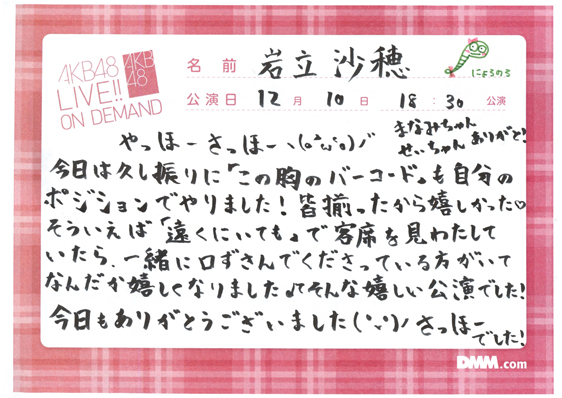 AKB48
LIVE!!
ON DEMAND
AKB
48
名前 岩立 沙穂
にょろのろ
公演日 12月 10日 18:30 公演
まなみちゃん
せいちゃん ありがと!
やっほーさっほーヽ(o'ω'o)ノ
今日は久し振りに「この胸のバーコード」も自分の
ポジションでやりました!皆揃ったから嬉しかった♡
そういえば「遠くにいても」で客席を見わたして
いたら、一緒に口ずさんでくださっている方がいて
なんだか嬉しくなりました♪そんな嬉しい公演でした!
今日もありがとうございました(˙˘˙)ノ さっほー
でした!
DMM.com